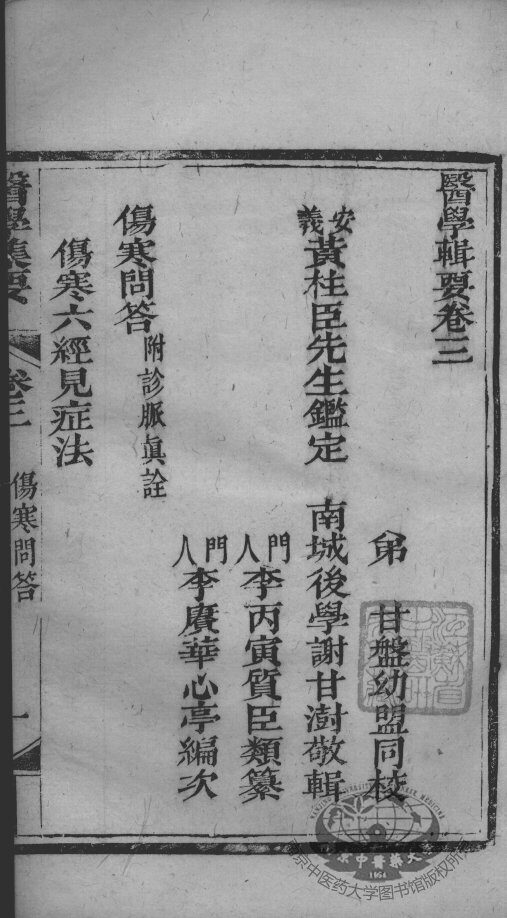 醫學輯要卷三
弟 甘盤幼盟同校
安義黃柱臣先生鑑定 南城後學謝甘澍敬輯
門人李丙寅質臣類纂
門人李賡華心亭編次
傷寒問答附診脈眞詮
傷寒六經見症法
醫學集要 卷三 傷寒問答 一
NANJING UNIVERSITY OF CHINESE MEDICINE
南京中醫藥大學
1954
南京中医药大学图书馆版权所有